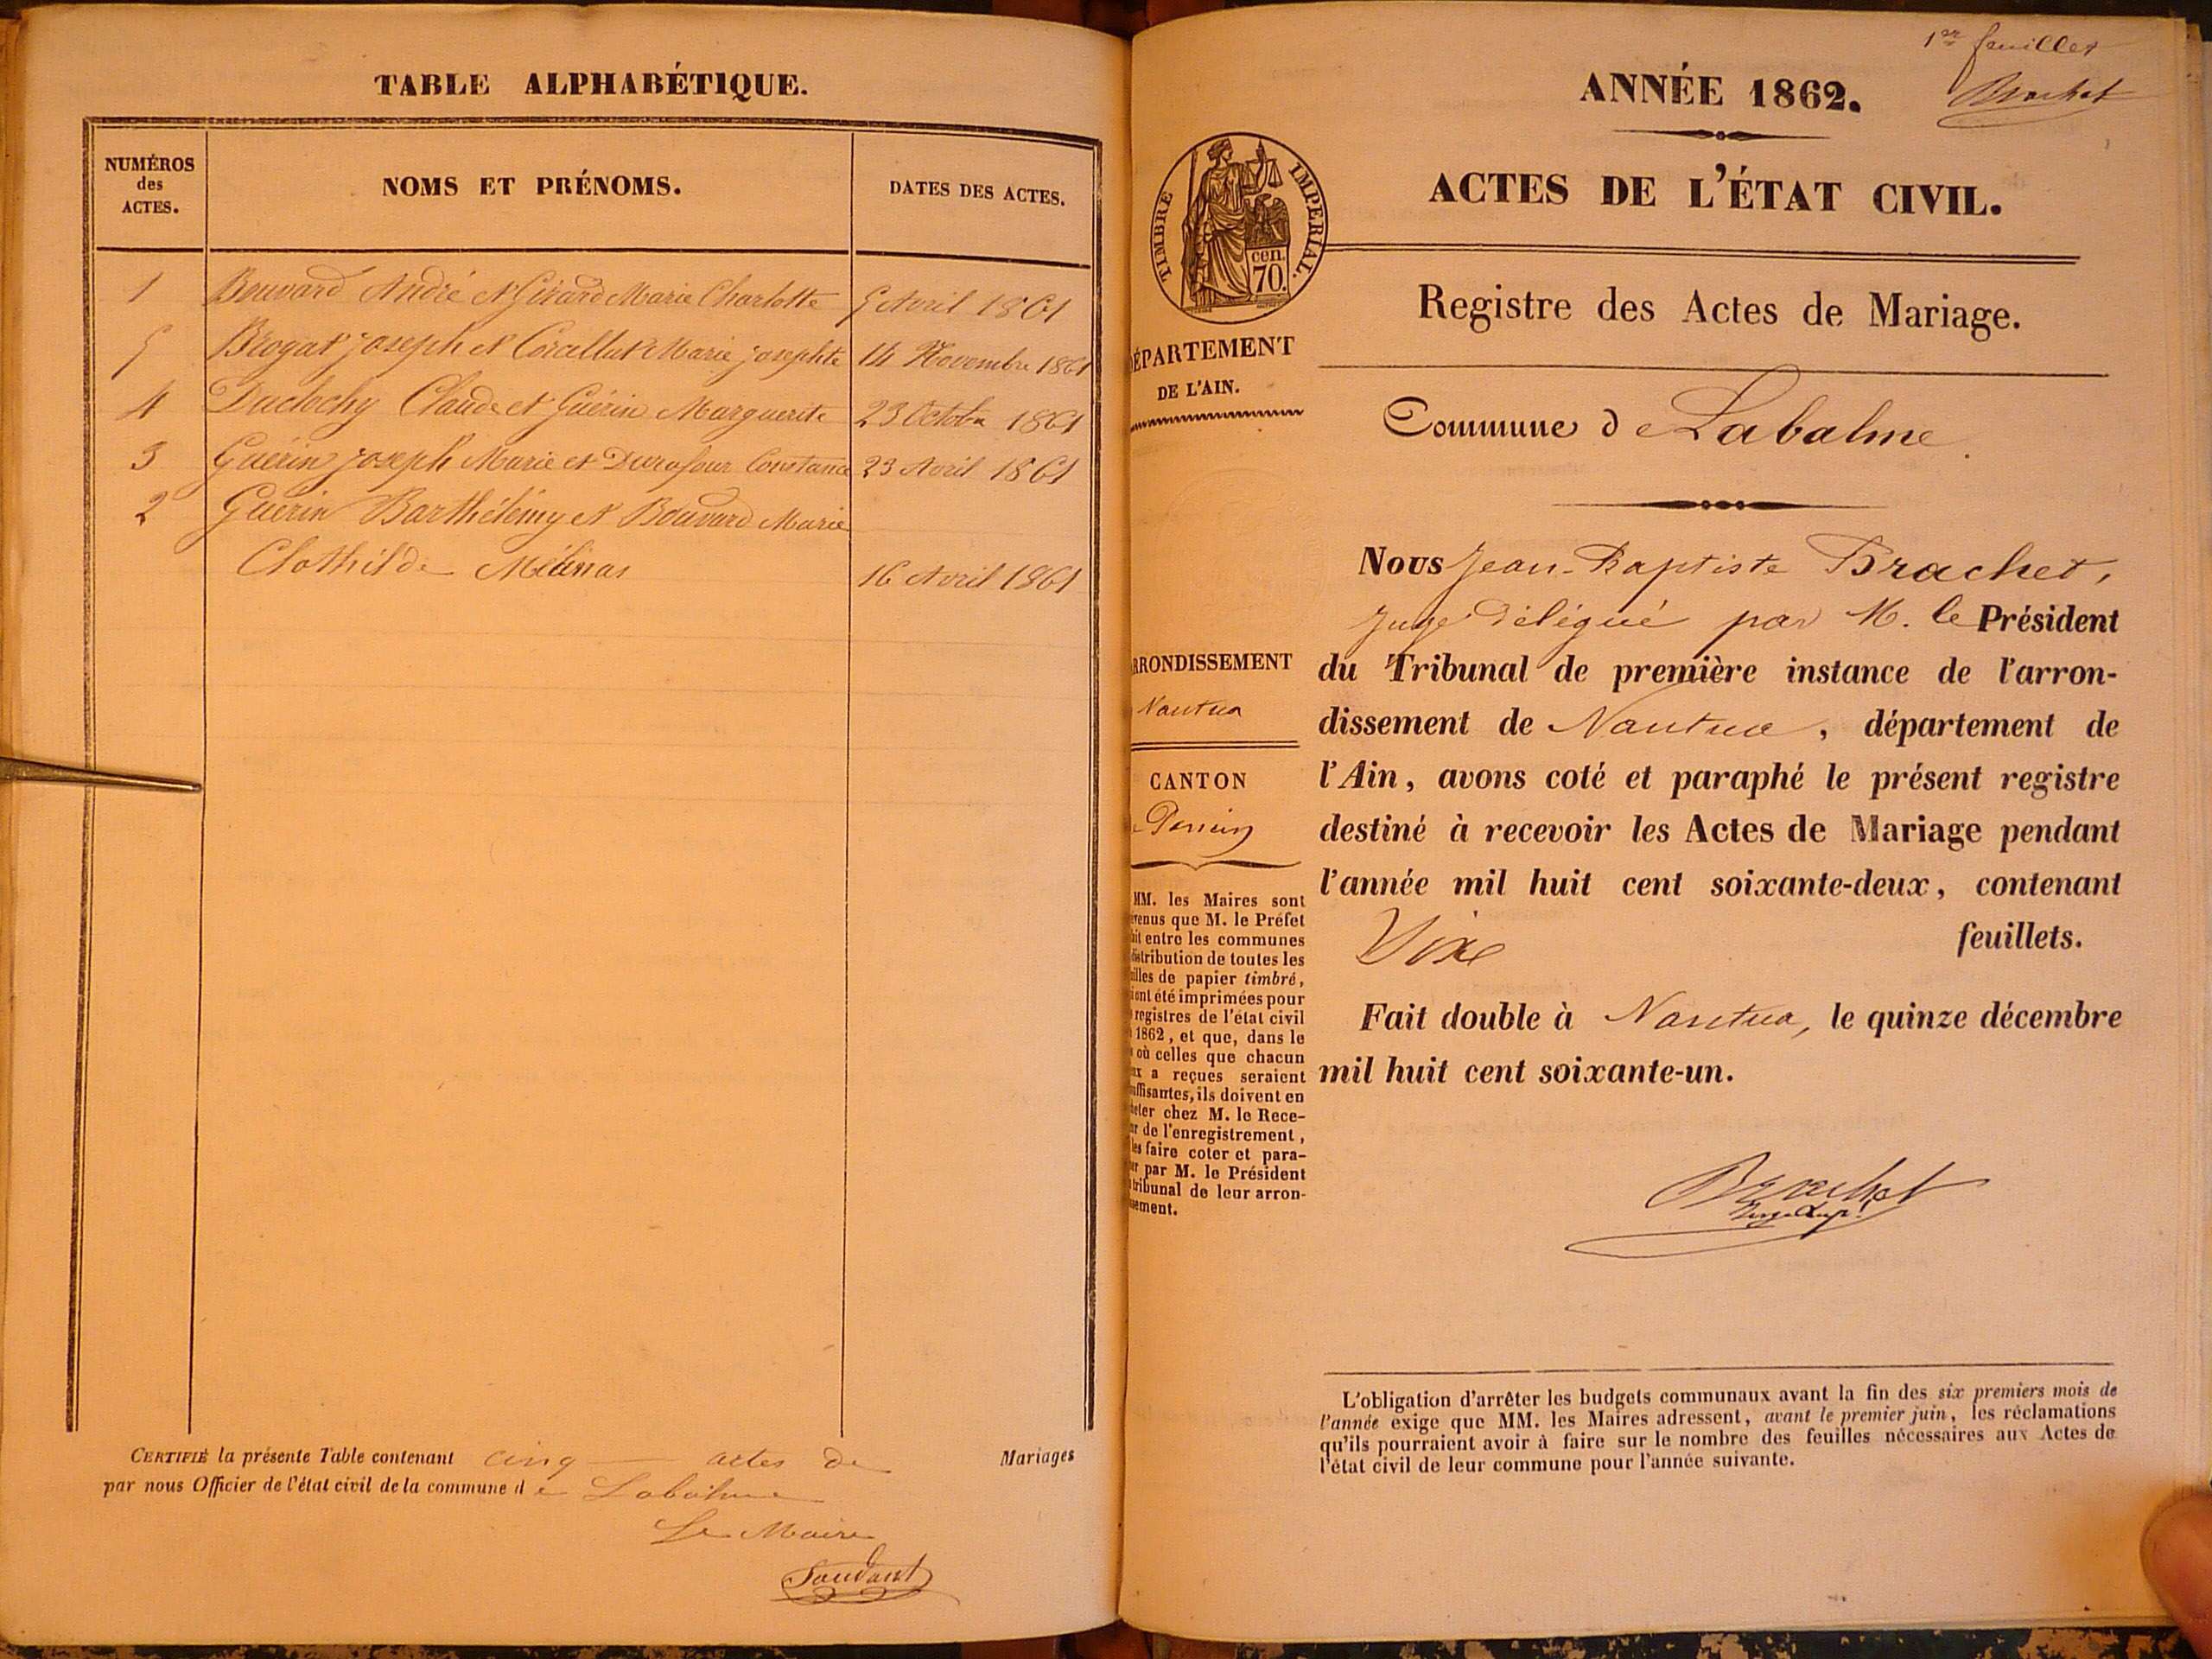 TABLE ALPHABÉTIQUE.
NUMÉROS
des
ACTES.
NOMS ET PRÉNOMS.
DATES DES ACTES.
1 Bouvard André et Girard Marie Charlotte 5 Avril 1861
5 Brogat joseph et Corcellut Marie josephte 14 Novembre 1861
4 Duclochy Claude et Guérin Marguerite 23 Octobre 1861
3 Guérin joseph Marie et Durafour Constance 23 Avril 1861
2 Guérin Barthélémy et Bouvard Marie
Clothilde Mélinas 16 Avril 1861
CERTIFIÉ la présente Table contenant cinq actes de Mariages
par nous Officier de l'état civil de la commune de Labalme
Le Maire
1er feuillet
Brachet
ANNÉE 1862.
ACTES DE L'ÉTAT CIVIL.
TIMBRE IMPERIAL.
cen.
70.
Registre des Actes de Mariage.
ÉPARTEMENT
DE L'AIN.
Commune de Labalme.
Nous Jean-Baptiste Brachet,
Juge délégué par M. le Président
du Tribunal de première instance de l'arron-
dissement de Nantua, département de
l'Ain, avons coté et paraphé le présent registre
destiné à recevoir les Actes de Mariage pendant
l'année mil huit cent soixante-deux, contenant
feuillets.
Fait double à Nantua, le quinze décembre
mil huit cent soixante-un.
Brachet
RRONDISSEMENT
Nantua
CANTON
MM. les Maires sont
venus que M. le Préfet
ait entre les communes
distribution de toutes les
illes de papier timbré,
i ont été imprimées pour
registres de l'état civil
1862, et que, dans le
où celles que chacun
ux a reçues seraient
uffisantes, ils doivent en
heter chez M. le Rece-
ur de l'enregistrement,
les faire coter et para-
er par M. le Président
tribunal de leur arron-
sement.
L'obligation d'arrêter les budgets communaux avant la fin des six premiers mois de
l'année exige que MM. les Maires adressent, avant le premier juin, les réclamations
qu'ils pourraient avoir à faire sur le nombre des feuilles nécessaires aux Actes de
l'état civil de leur commune pour l'année suivante.